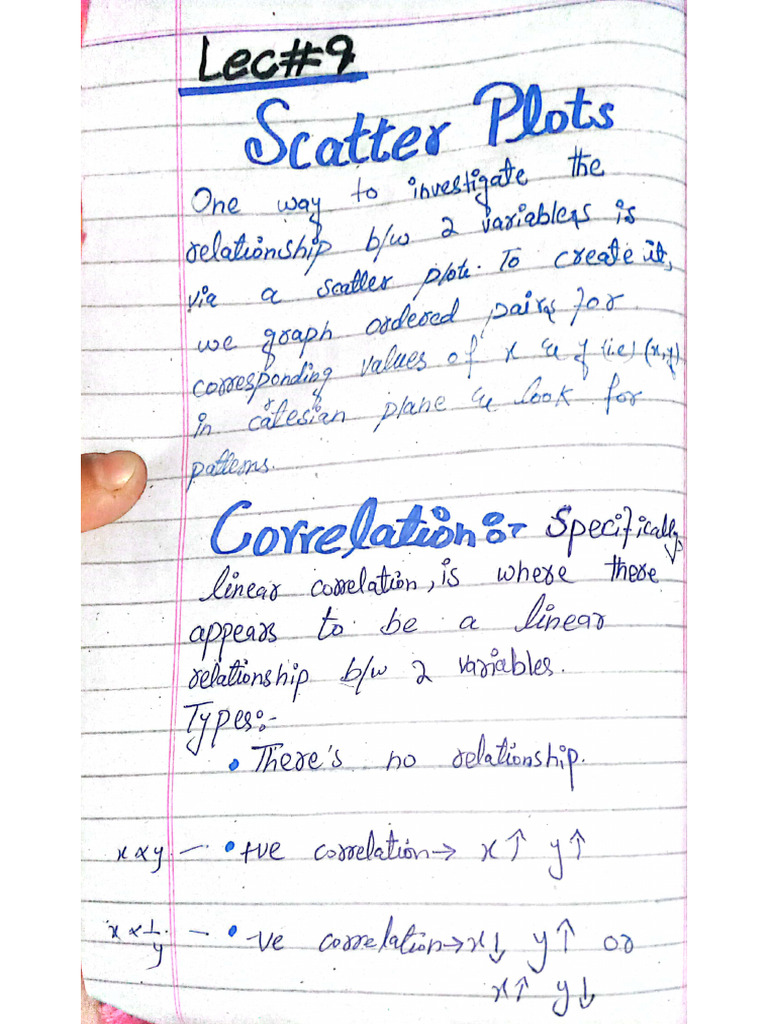 Lec#9
Scatter Plots
One way to investigate the
relationship b/w 2 variables is
via a scatter plot. To create it,
we graph ordered pairs for
corresponding values of x & y (i.e) (x,y)
in catesian plane & look for
patterns.
Correlation:- Specifically
linear correlation, is where there
appears to be a linear
relationship b/w 2 variables.
Types:-
• There's no relationship.
x ∝ y — • +ve correlation → x↑ y↑
x ∝ 1/y — • -ve correlation → x↓ y↑ or
x↑ y↓